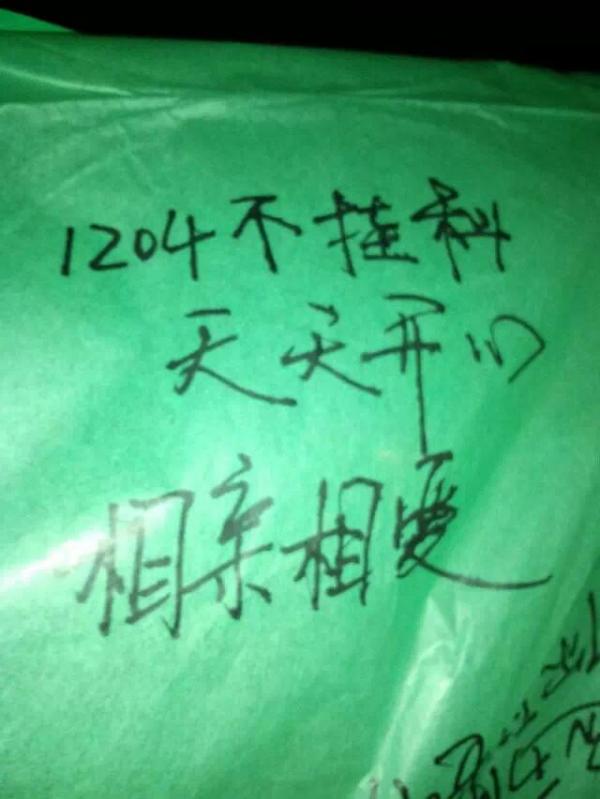 1204不挂科
天天开心
相亲相爱